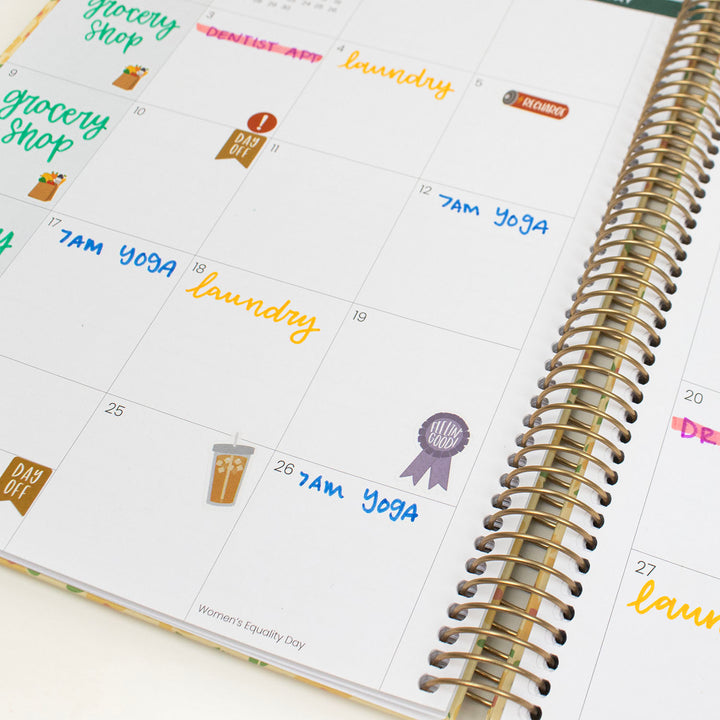 grocery
shop
3
DENTIST APT
4
laundry
5
RECHARGE
9
grocery
shop
10
!
DAY
OFF
11
12
7AM YOGA
17
7AM YOGA
18
laundry
19
FEELIN'
GOOD!
20
DAY
OFF
25
26
7AM YOGA
Women's Equality Day
27